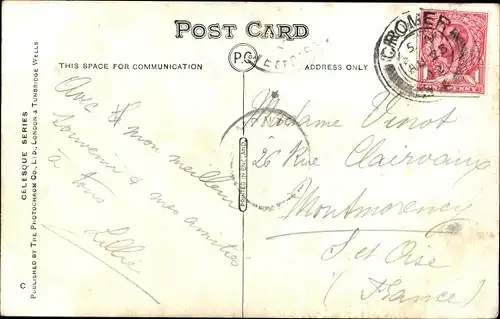 POST CARD
THIS SPACE FOR COMMUNICATION
P.C.
ADDRESS ONLY
CROMER
PENNY
Avec mon meilleur
souvenir & mes amitiés
à tous
Lillie
Madame Vinot
26 Rue Clairvaux
Montmorency
S et Oise
(France)
PRINTED IN ENGLAND
CELESQUE SERIES
PUBLISHED BY THE PHOTOCHROM CO., LTD., LONDON & TUNBRIDGE WELLS
C